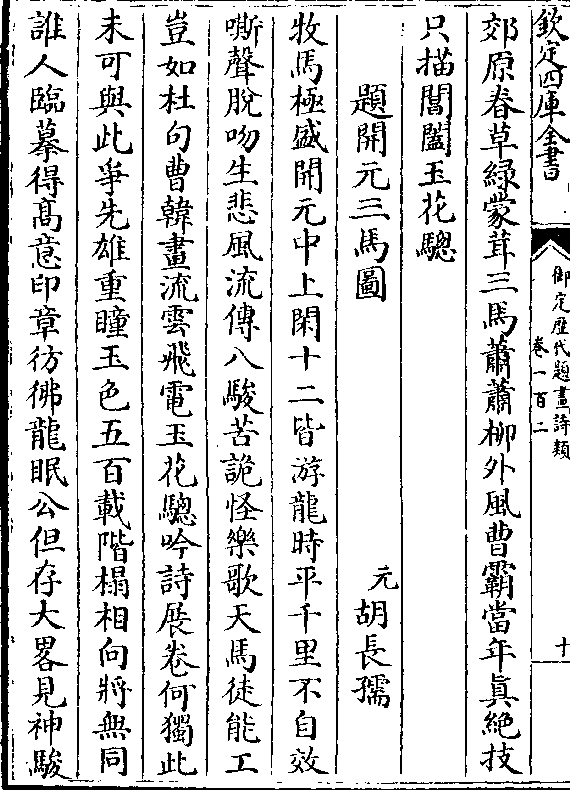 欽定四庫全書
御定歴代題畫詩類
卷一百二
十
郊原春草緑蒙茸三馬蕭蕭柳外風曹霸當年真絶技
只描閶闔玉花驄
題開元三馬圖
元胡長孺
牧馬極盛開元中上閑十二皆游龍時平千里不自效
嘶聲脫吻生悲風流傳八駿苦詭怪樂歌天馬徒能工
豈如杜句曹韓畫流雲飛電玉花驄吟詩展卷何獨此
未可與此爭先雄重瞳玉色五百載階榻相向將無同
誰人臨摹得髙意印章彷彿龍眠公但存大畧見神駿